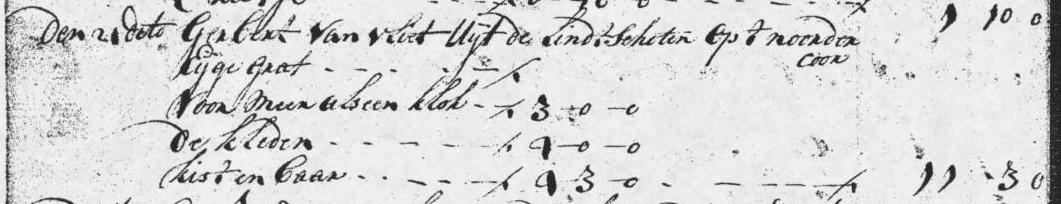 1 10 0
Den 21 dito Gerbert Van Vliet Uijt de Lindt Schoten Op t noorder
Coor
Eijge graf - - - - /
Voor Meer als een klok - / 3 - 0 - 0
De kleden - - - - / 4 - 0 - 0
kist en baar - - - - / 4 3 - 0 - - - - / 11 - 3 0